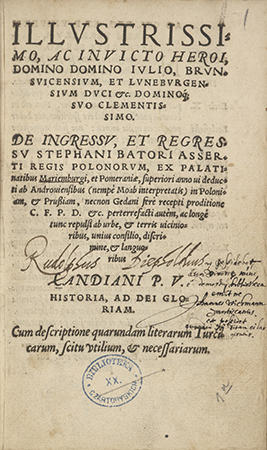 ILLVSTRISSI
MO, AC INVICTO HEROI,
DOMINO DOMINO IVLIO, BRVN
SVICENSIVM, ET LVNEBVRGEN
SIVM DVCI &c. DOMINOq;
SVO CLEMENTIS-
SIMO.
DE INGRESSV, ET REGRES
SV STEPHANI BATORI ASSER
TI REGIS POLONORVM, EX PALATI
natibus Marienburgi, et Pomeraniæ, superiori anno ui deduct
ti ab Androuensibus (nempè Moab interpretatis) in Poloni-
am, & Prussiam, necnon Gedani ferè recepti proditione
C. F. P. D. &c. perterrefacti autem, ac longè
tunc repulsi ab urbe, & terris uicino-
ribus, unius consilio, discri-
mine, & languo-
ribus
Rudolphus
XANDIANI P. V.
HISTORIA, AD DEI GLO
RIAM.
Cum descriptione quarundam literarum Turci
carum, scitu vtilium, & necessariarum.
BIBLIOTEKA
XX.
CZARTORYSKICH